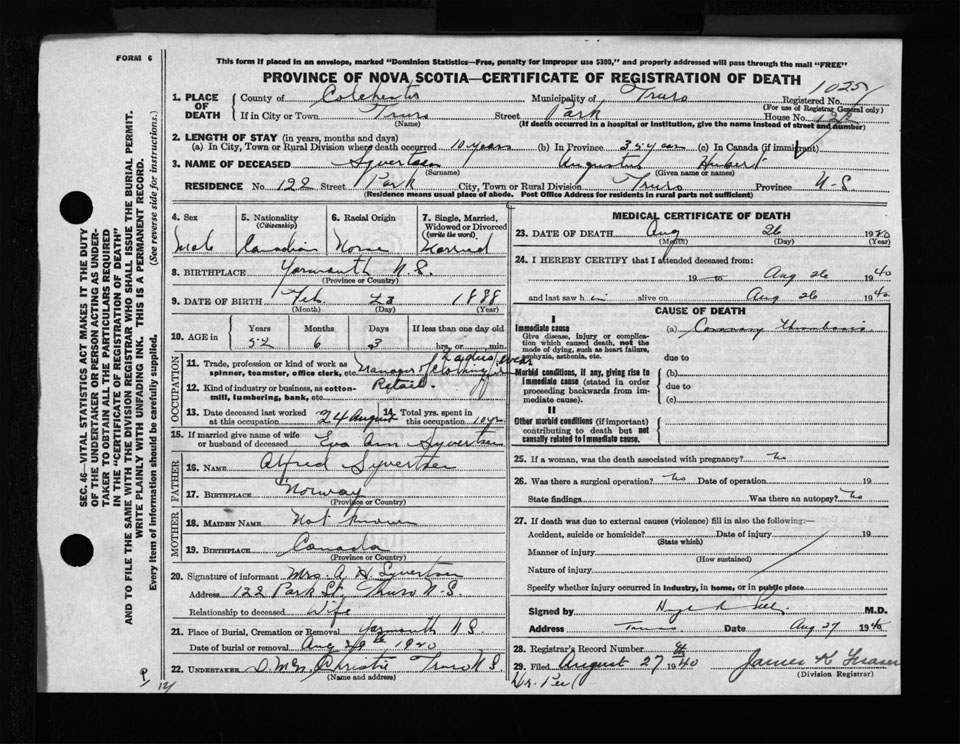 FORM 6
This form if placed in an envelope, marked "Dominion Statistics—Free, penalty for improper use $300," and properly addressed will pass through the mail "FREE"
PROVINCE OF NOVA SCOTIA—CERTIFICATE OF REGISTRATION OF DEATH
1025
1. PLACE OF DEATH
County of Colchester Municipality of Truro Registered No.
(For use of Registrar General only)
If in City or Town Truro Street Park House No. 122
(Name) (If death occurred in a hospital or institution, give the name instead of street and number)
2. LENGTH OF STAY (in years, months and days)
(a) In City, Town or Rural Division where death occurred 10 years (b) In Province 35 years (c) In Canada (if immigrant)
3. NAME OF DECEASED Syvertsen Augustus Hubert
(Surname) (Given name or names)
RESIDENCE No. 122 Street Park City, Town or Rural Division Truro Province N-S
(Residence means usual place of abode. Post Office Address for residents in rural parts not sufficient)
4. Sex 5. Nationality (Citizenship) 6. Racial Origin 7. Single, Married, Widowed or Divorced (write the word)
Male Canadian Norse Married
8. BIRTHPLACE Yarmouth N.S.
(Province or Country)
9. DATE OF BIRTH Feb. 23 1888
(Month) (Day) (Year)
10. AGE in Years Months Days If less than one day old
52 6 3 hrs. or min.
OCCUPATION
11. Trade, profession or kind of work as spinner, teamster, office clerk, etc. Manager of Ladies wear clothing
12. Kind of industry or business, as cotton-mill, lumbering, bank, etc. Retail
13. Date deceased last worked at this occupation 24 August 14. Total yrs. spent in this occupation 10 yrs
15. If married give name of wife or husband of deceased Eva Ann Syvertsen
FATHER
16. NAME Alfred Syvertsen
17. BIRTHPLACE Norway
(Province or Country)
MOTHER
18. MAIDEN NAME Not known
19. BIRTHPLACE Canada
(Province or Country)
20. Signature of informant Mrs. A. H. Syvertsen
Address 122 Park St, Truro N-S.
Relationship to deceased Wife
21. Place of Burial, Cremation or Removal Yarmouth N.S.
Date of burial or removal Aug 29th 1940
22. UNDERTAKER Christie Truro N.S.
(Name and address)
MEDICAL CERTIFICATE OF DEATH
23. DATE OF DEATH Aug 26 1940
(Month) (Day) (Year)
24. I HEREBY CERTIFY that I attended deceased from:
19 to Aug 26 1940
and last saw him alive on Aug 26 1940
CAUSE OF DEATH
I
Immediate cause
Give disease, injury or complication which caused death, not the mode of dying, such as heart failure, asphyxia, asthenia, etc.
(a) Coronary thrombosis
due to
Morbid conditions, if any, giving rise to immediate cause (stated in order proceeding backwards from immediate cause).
(b)
due to
(c)
II
Other morbid conditions (if important) contributing to death but not causally related to immediate cause.
25. If a woman, was the death associated with pregnancy? No
26. Was there a surgical operation? No Date of operation 19
State findings Was there an autopsy? No
27. If death was due to external causes (violence) fill in also the following:—
Accident, suicide or homicide? Date of injury 19
(State which)
Manner of injury
(How sustained)
Nature of injury
Specify whether injury occurred in industry, in home, or in public place
Signed by M.D.
Address Truro Date Aug 27 1940
28. Registrar's Record Number
29. Filed August 27 1940 James K Fraser
(Division Registrar)
Dr. Peel
SEC. 46—VITAL STATISTICS ACT MAKES IT THE DUTY
OF THE UNDERTAKER OR PERSON ACTING AS UNDER-
TAKER TO OBTAIN ALL THE PARTICULARS REQUIRED
IN THE "CERTIFICATE OF REGISTRATION OF DEATH"
AND TO FILE THE SAME WITH THE DIVISION REGISTRAR WHO SHALL ISSUE THE BURIAL PERMIT.
WRITE PLAINLY WITH UNFADING INK. THIS IS A PERMANENT RECORD.
Every item of information should be carefully supplied. (See reverse side for instructions.)